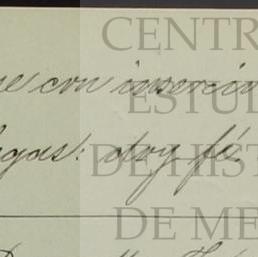 CENTR
se con inserció
ESTU
legas: doy fé.
DE HIST
DE ME